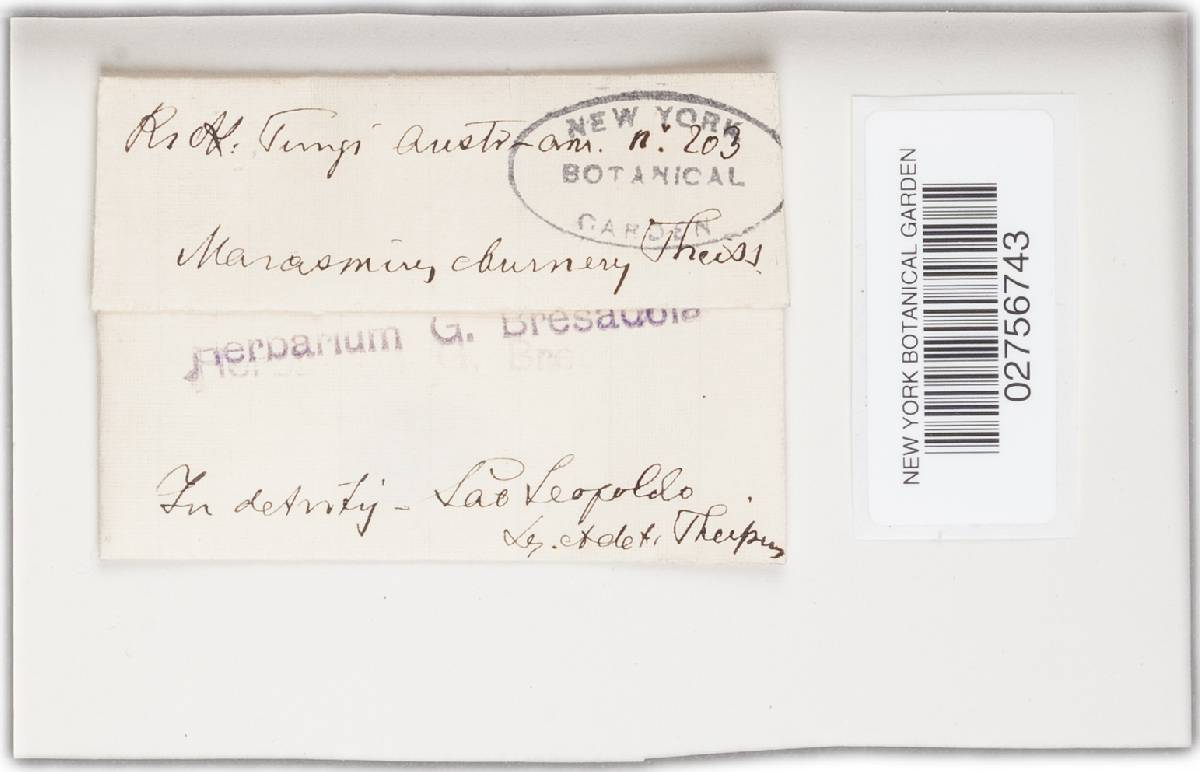 Rick. Fungi austr-am. n. 203
NEW YORK
BOTANICAL
GARDEN
Marasmius eburneus Theiss.
Herbarium G. Bresadola
In detritis - São Leopoldo.
Leg. et det. Theissen
NEW YORK BOTANICAL GARDEN
02756743